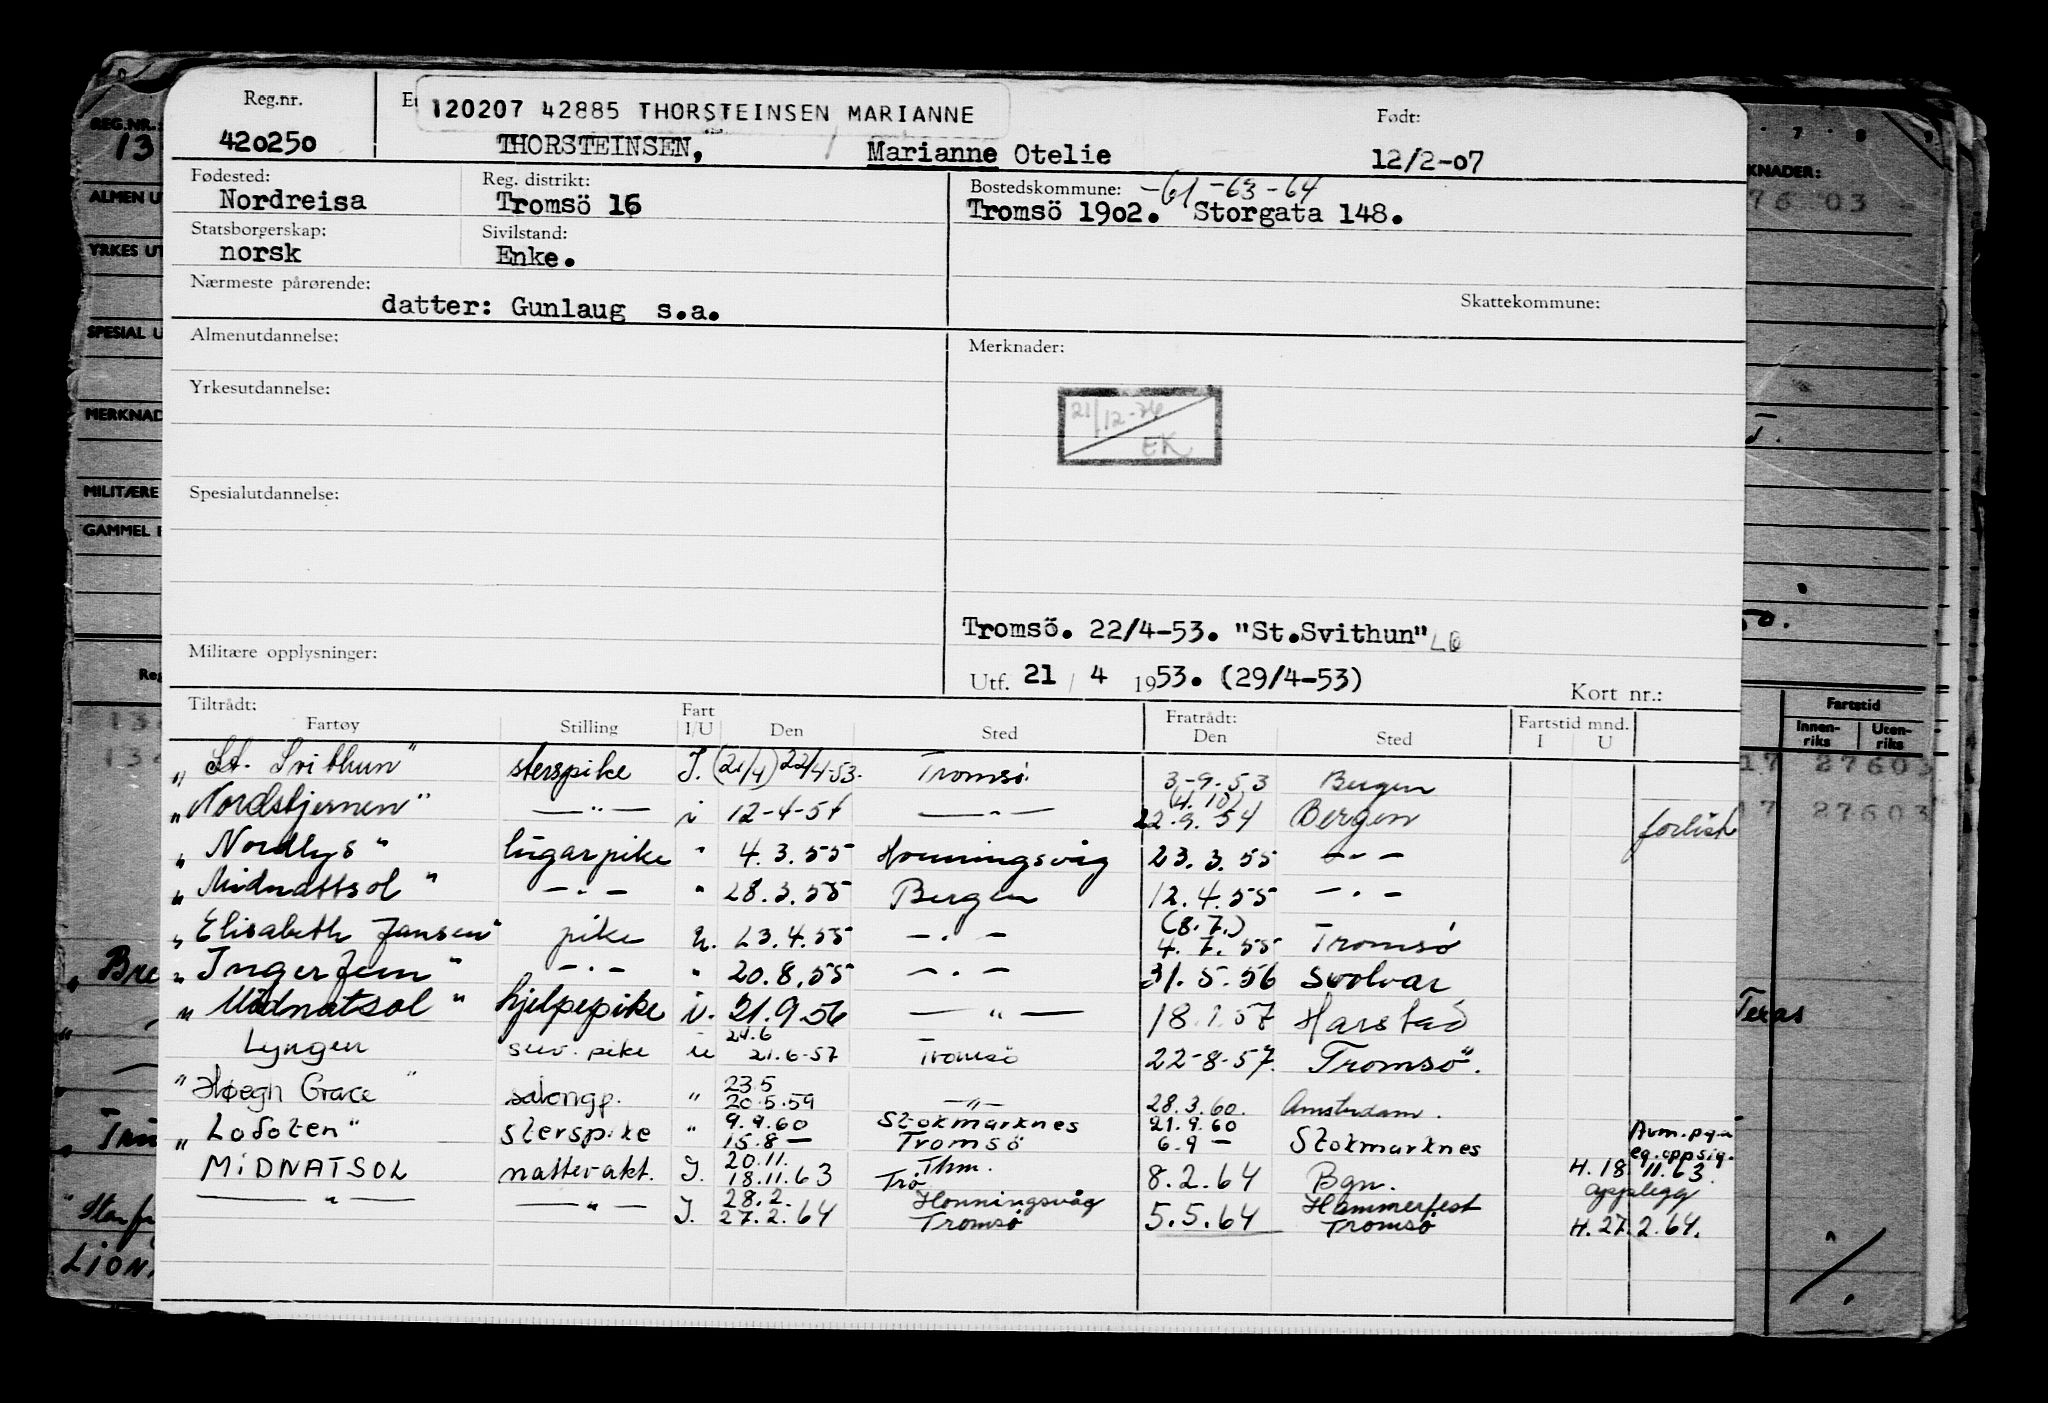 Reg.nr.
120207 42885 THORSTEINSEN MARIANNE
Født:
420250 THORSTEINSEN, Marianne Otelie 12/2-07
Fødested: Reg. distrikt: Bostedskommune: -61 -63 -64
Nordreisa Tromsö 16 Tromsö 1902. Storgata 148.
Statsborgerskap: Sivilstand:
norsk Enke.
Nærmeste pårørende:
datter: Gunlaug s.a.
Skattekommune:
Almenutdannelse: Merknader:
Yrkesutdannelse:
21/12-76
EK
Spesialutdannelse:
Tromsö. 22/4-53. "St.Svithun"
Militære opplysninger:
Utf. 21 / 4 1953. (29/4-53)
Kort nr.:
Tiltrådt: Fratrådt: Fartstid mnd.
Fartøy Stilling Fart I/U Den Sted Den Sted I U
"St. Svithun" sterspike I. (21/4) 22/4-53. Tromsö 3-9-53 Bergen
"Nordstjernen" —"— i 12-4-54 —"— (4.10) 22.9.54 Bergen forlist
"Nordlys" lugarpike " 4.3.55 Honningsvåg 23.3.55 —"—
"Midnattsol" —"— " 28.3.55 Bergen 12.4.55 —"—
"Elisabeth Jansen" pike u. 23.4.55 —"— (8.7.) 4.7.55 Tromsö
"Ingerfem" —"— " 20.8.55 —"— 31.5.56 Svolvær
"Midnatsol" hjelpepike i. 21.9.56 —"— 18.1.57 Harstad
Lyngen serv. pike u 24.6 21.6-57 Tromsö 22-8-57. Tromsö.
"Høegh Grace" salongp. " 23.5 20.5.59 —"— 28.3.60. Amsterdam.
"Lofoten" sterspike " 9.9.60 Stokmarknes 21.9.60
15.8— Tromsö 6.9— Stokmarknes Avm. pga eg. oppsig.
MIDNATSOL nattevakt. I. 20.11. 18.11.63 Thm. Trö 8.2.64 Bgn. H. 18.11.63. opplegg
—"— —"— I. 28.2. 27.2.64 Honningsvåg Tromsö 5.5.64 Hammerfest Tromsö H. 27.2.64.
REG.NR.
13
ALMEN U
YRKES UT
SPESIAL U
MERKNAD
MILITÆRE
GAMMEL
Reg
KNADER:
76 03
Fartstid
Innen-riks Uten-riks
17 27603
17 27603
Bre
Texas
LION